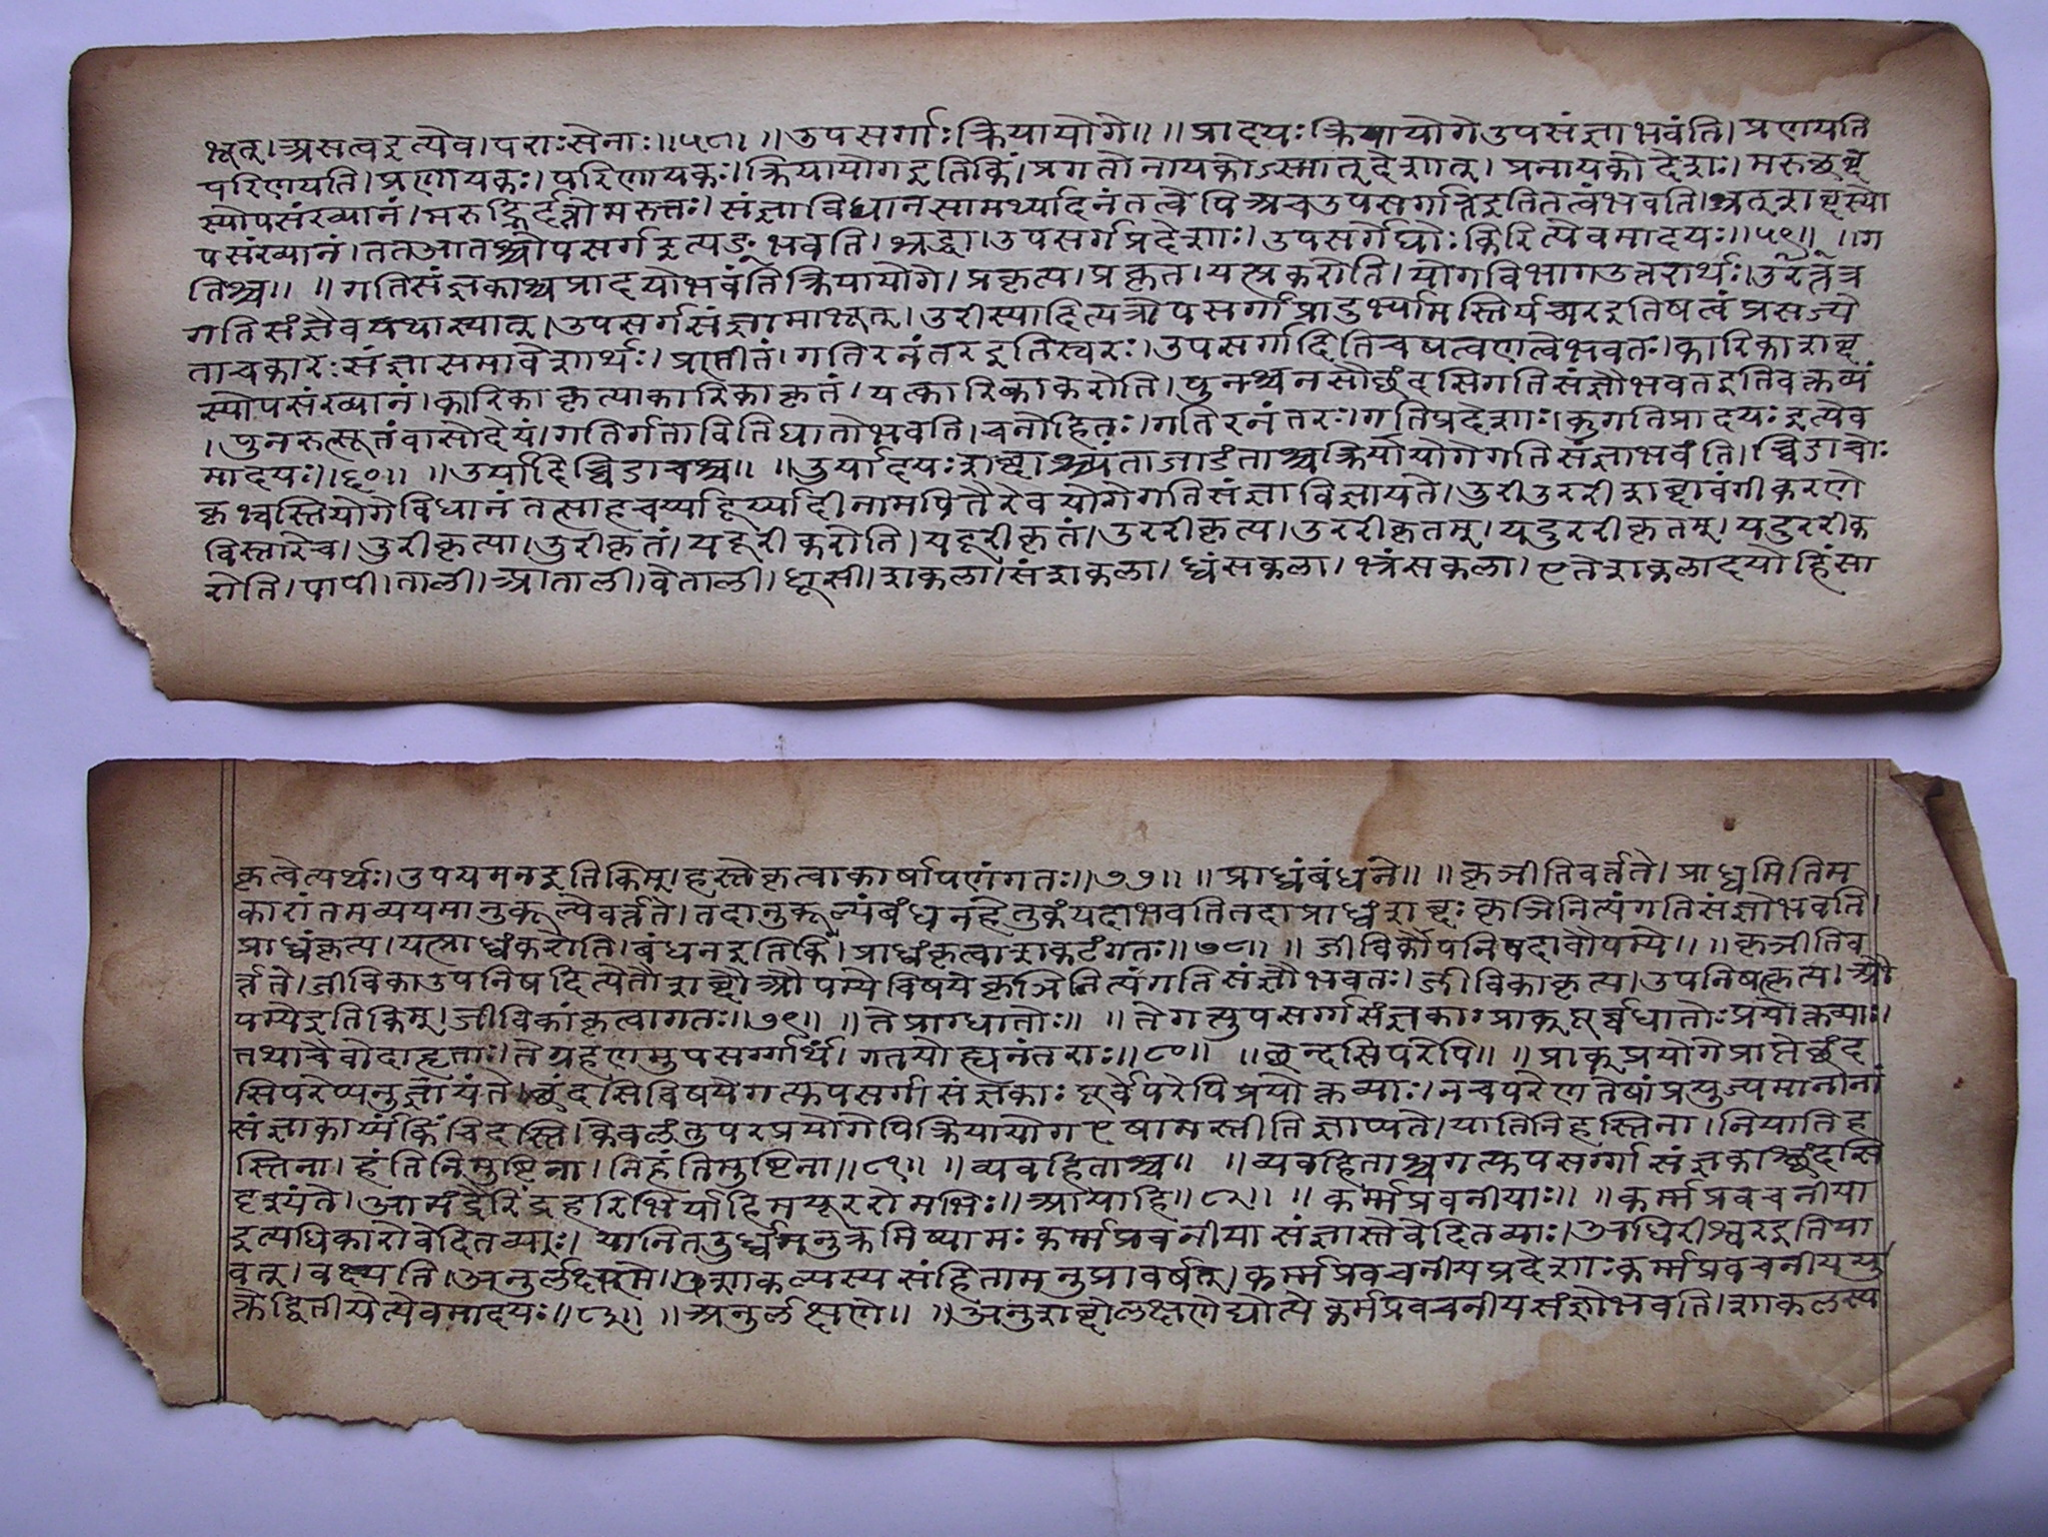 भूत्। असत्वइत्येव। पराःसेनाः॥५८॥ ॥उपसर्गाःक्रियायोगे॥ ॥प्रादयःक्रियायोगेउपसंज्ञाभवंति। प्रणयति
परिणयति। प्रणायकः। परिणायकः। क्रियायोगइतिकिं। प्रगतोनायकोऽस्मात्देशात्। प्रनायकोदेशः। मरुछब्द
स्योपसंख्यानं। मरुद्भिर्दत्तोमरुत्तः। संज्ञाविधानसामर्थ्यादनंतत्वेपिअचउपसर्गात्तिइतितत्वंभवति। श्रत्शब्दस्यो
पसंख्यानं। ततआतश्चोपसर्गइत्यङ्भवति। श्रद्धा। उपसर्गप्रदेशाः। उपसर्गेघोःकिरित्येवमादयः॥५९॥ ॥ग
तिश्च॥ ॥गतिसंज्ञकाश्चप्रादयोभवंतिक्रियायोगे। प्रकृत्य। प्रकृत। यत्प्रकरोति। योगविभागउत्तरार्थः। उत्तरत्र
गतिसंज्ञैवयथास्यात्। उपसर्गसंज्ञामाभूत्। उरीस्यादित्यत्रोपसर्गप्रादुर्भ्यामस्तिर्यच्परइतिषत्वंप्रसज्ये
ताचकारःसंज्ञासमावेशार्थः। प्रातीतं। गतिरनंतरइतिस्वरः। उपसर्गादितिचषत्वणत्वेभवतः। कारिकाशब्द
स्योपसंख्यानं। कारिकाकृत्य। कारिकाकृतं। यत्कारिकाकरोति। पुनश्चनसौछंदसिगतिसंज्ञौभवतइतिवक्तव्यं
। पुनरुत्स्यूतंवासोदेयं। गतिर्गतावितिघातोभवति। चनोहितः। गतिरनंतरः। गतिप्रदेशाः। कुगतिप्रादयःइत्येव
मादयः॥६०॥ ॥उर्यादिच्विडाचश्च॥ ॥उर्यादयःशब्दाश्च्यंताडाडंताश्चक्रियायोगेगतिसंज्ञाभवंति। च्विडाचोः
कृभ्वस्तियोगेविधानंतत्साहचर्य्यादूर्य्यादीनामपितैरेवयोगेगतिसंज्ञाविज्ञायते। उरीउररीशब्दावंगीकरणे
विस्तारेच। उरीकृत्या। उरीकृतं। यदूरीकरोति। यदूरीकृतं। उररीकृत्य। उररीकृतम्। यदुररीकृतम्। यदुररीक
रोति। पापी। ताली। आताली। वेताली। धूसी। शकला। संशकला। ध्वंसकला। भ्रंसकला। एतेशकलादयोहिंसा
कृत्वेत्यर्थः। उपयमनइतिकिम्। हस्तेकृत्वाकार्षापणंगतः॥७७॥ ॥प्राध्वंबंधने॥ ॥कृञीतिवर्तते। प्राध्वमितिम
कारांतमव्ययमानुकूल्येवर्त्तते। तदानुकूल्यंबंधनहेतुकंयदाभवतितदाप्राध्वंशब्दःकृञिनित्यंगतिसंज्ञोभवति।
प्राध्वंकृत्य। यत्प्राध्वंकरोति। बंधनइतिकिं। प्राध्वंकृत्वाशकटंगतः॥७८॥ ॥जीविकोपनिषदावौपम्ये॥ ॥कृञीतिव
र्त्तते। जीविकाउपनिषदित्येतौशब्दौऔपम्येविषयेकृञिनित्यंगतिसंज्ञौभवतः। जीविकाकृत्य। उपनिषत्कृत्य। औ
पम्येइतिकिम्। जीविकांकृत्वागतः॥७९॥ ॥तेप्राग्धातोः॥ ॥तेगत्युपसर्ग्गसंज्ञकाःप्राक्पूर्व्वंधातोःप्रयोक्तव्याः।
तथाचैवोदाहृताः। तेग्रहणमुपसर्ग्गार्थं। गतयोह्यनंतराः॥८०॥ ॥छन्दसिपरेपि॥ ॥प्राक्प्रयोगेप्राप्तेछंद
सिपरेप्यनुज्ञायंते। छंदसिविषयेगत्युपसर्गसंज्ञकाःपूर्वेपरेपिप्रयोक्तव्याः। नचपरेणतेषांप्रयुज्यमानानां
संज्ञाकार्य्यंकिंचिदस्ति। केवलंतुपरप्रयोगेपिक्रियायोगएषामस्तीतिज्ञाप्यते। यातिनिहस्तिना। नियातिह
स्तिना। हंतिनिमुष्टिना। निहंतिमुष्टिना॥८१॥ ॥व्यवहिताश्च॥ ॥व्यवहिताश्चगत्युपसर्ग्गसंज्ञकाश्छंदसि
दृश्यंते। आमंद्रैरिंद्रहरिभिर्याहिमयूररोमभिः॥आयाहि॥८२॥ ॥कर्म्मप्रवनीयाः॥ ॥कर्म्मप्रवचनीया
इत्यधिकारोवेदितव्याः। यानितदुर्ध्वमनुक्रमिष्यामःकर्म्मप्रवनीयासंज्ञास्तेवेदितव्याः। अधिरीश्वरइतिया
वत्। वक्ष्यति। अनुर्लक्षणे। शाकल्यस्यसंहितामनुप्रावर्षत्। कर्म्मप्रवचनीयप्रदेशाःकर्म्मप्रवचनीययु
क्तेद्वितीयेत्येवमादयः॥८३॥ ॥अनुर्लक्षणे॥ ॥अनुशब्दोलक्षणेद्योत्येकर्मप्रवचनीयसंज्ञोभवति। शाकलस्य